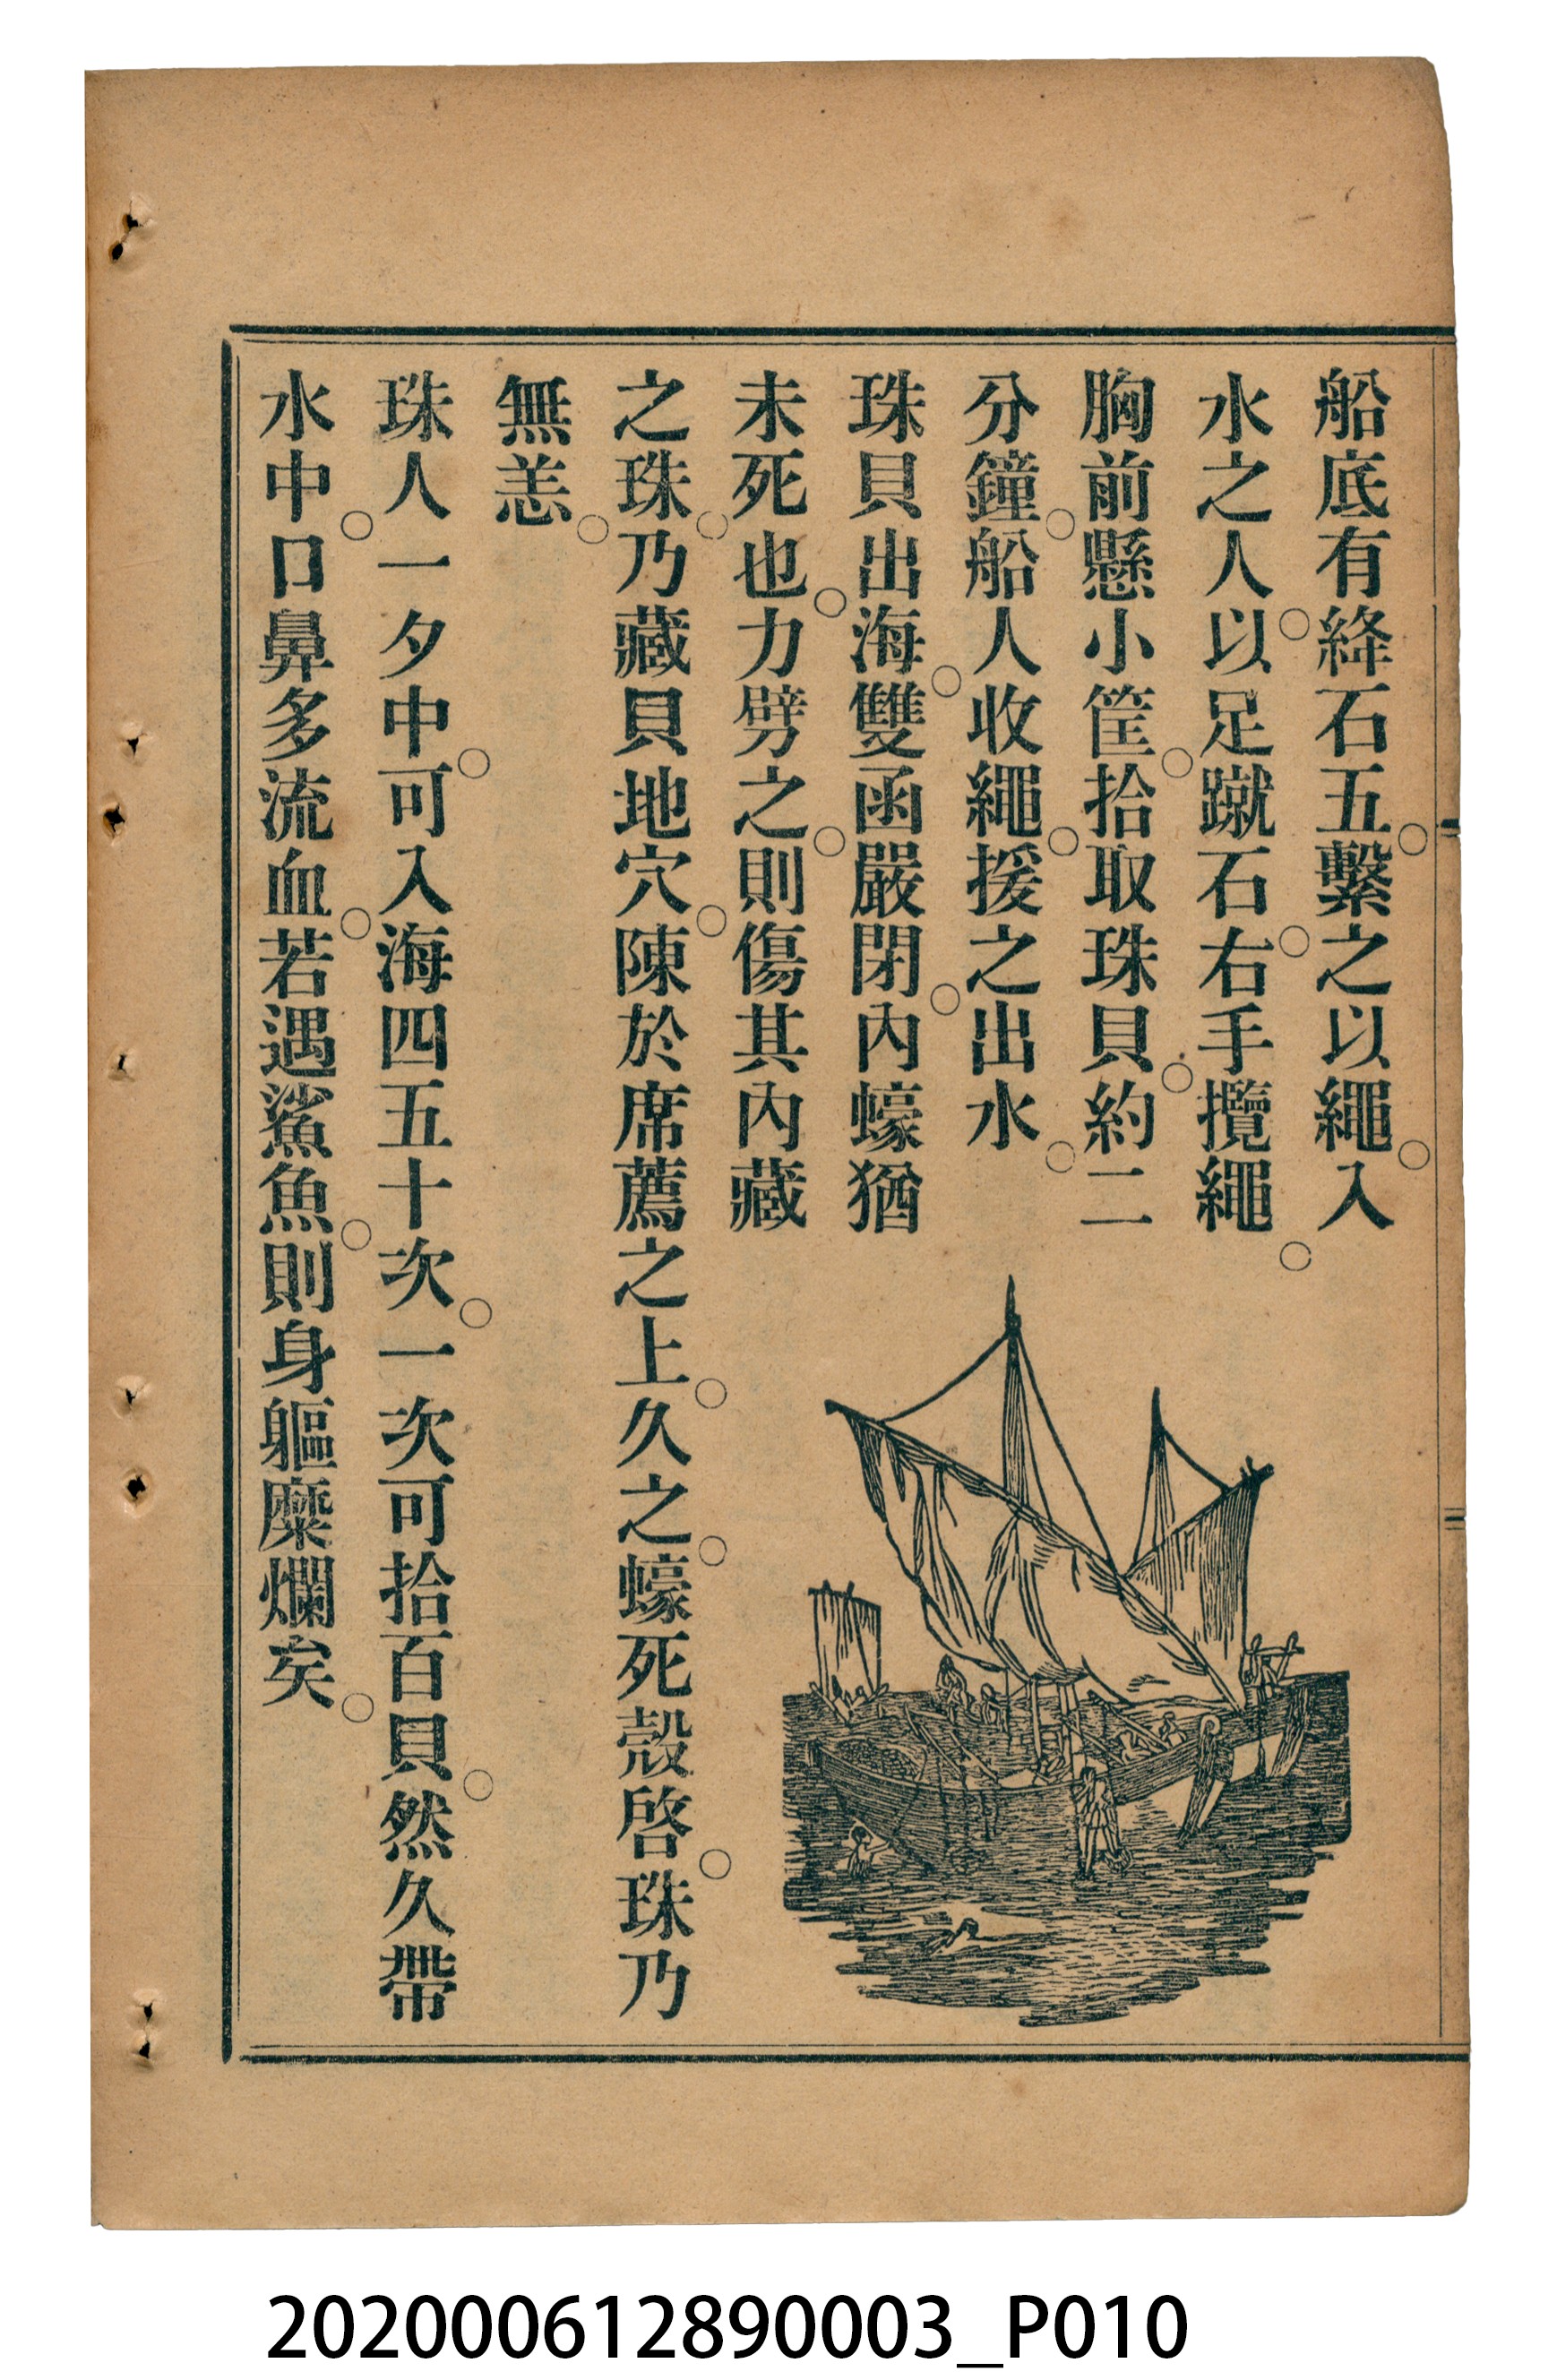 船底有絳石五。繫之以繩。入
水之人。以足蹴石。右手攬繩。
胸前懸小筐。拾取珠貝。約二
分鐘。船人收繩。援之出水。
珠貝出海。雙函嚴閉。內蠔猶
未死也。力劈之。則傷其內藏
之珠。乃藏貝地穴。陳於席薦之上。久之。蠔死殼啓。珠乃
無恙。
珠人一夕中。可入海四五十次。一次可拾百貝。然久帶
水中。口鼻多流血。若遇鯊魚。則身軀糜爛矣。
202000612890003_P010